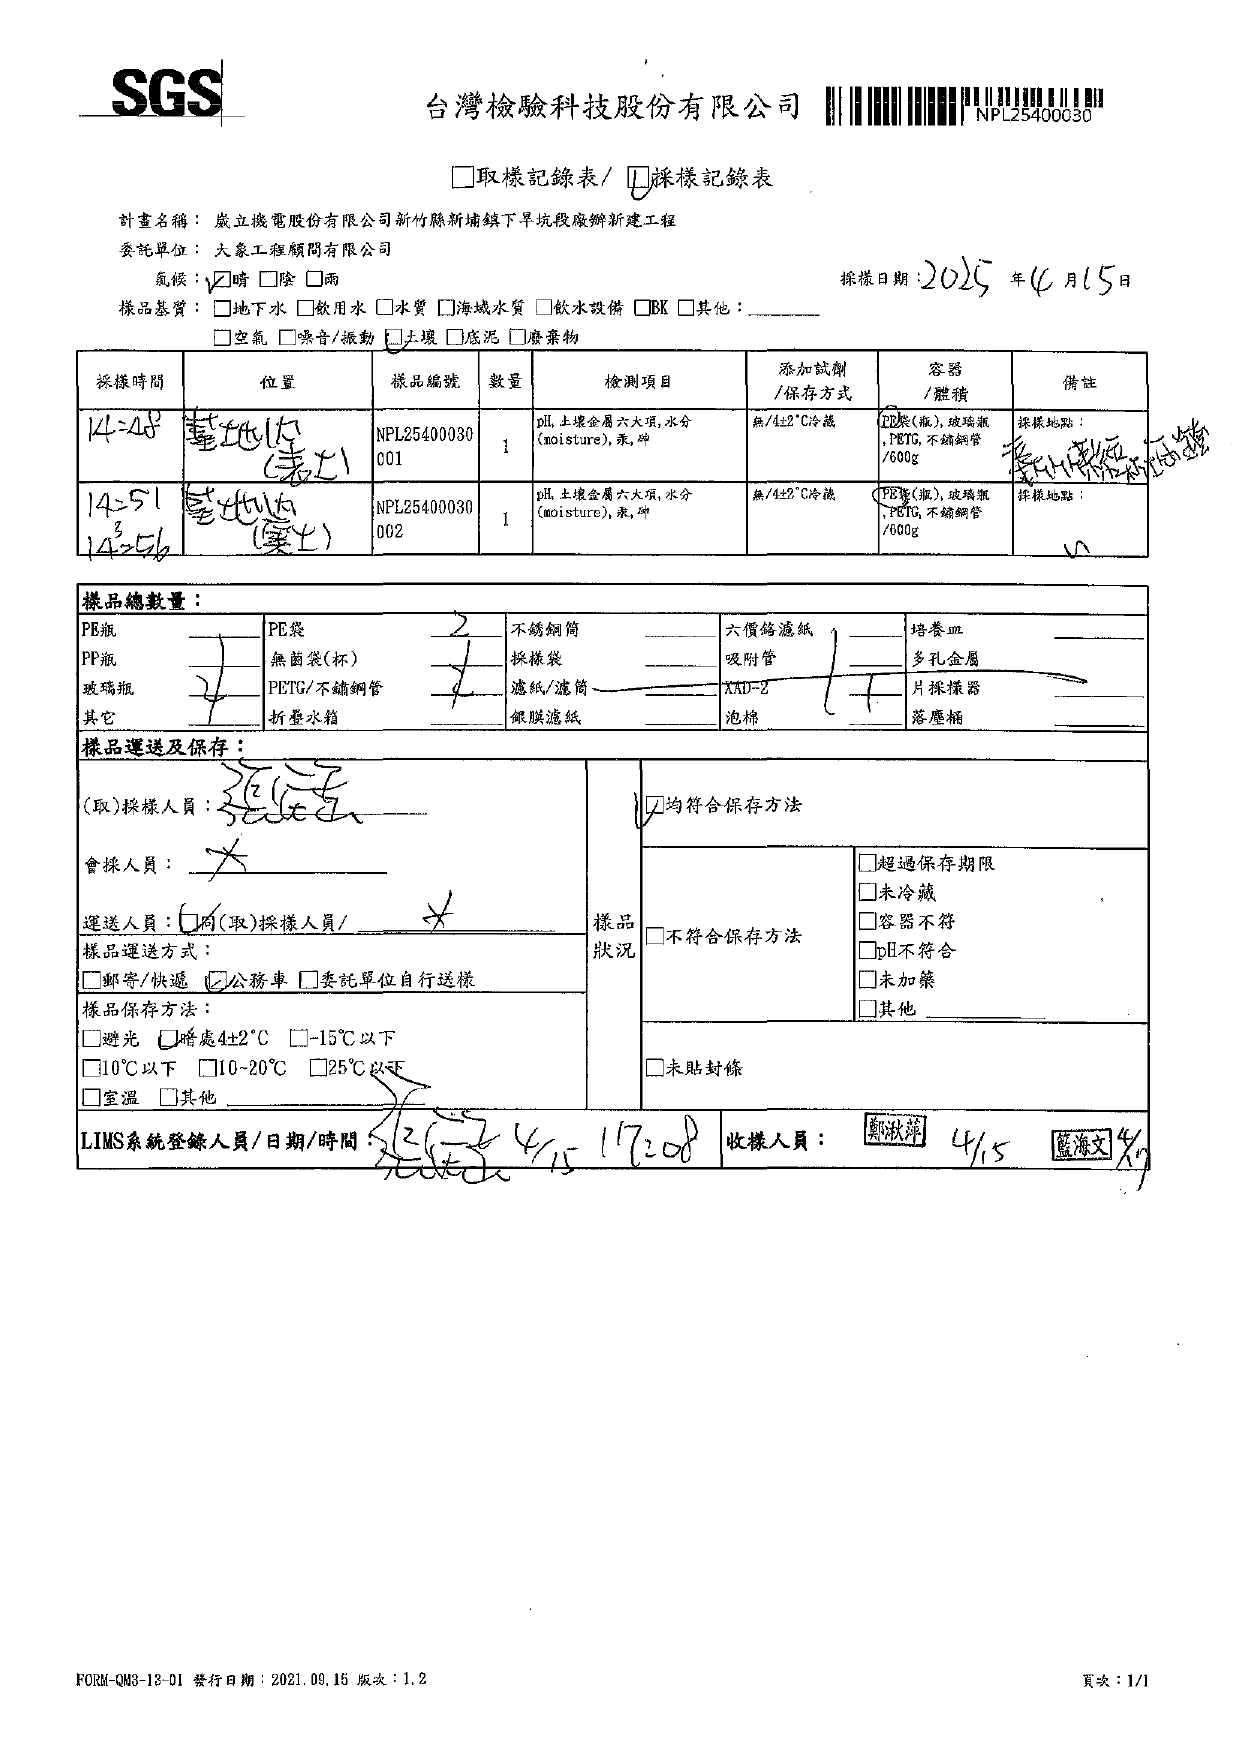 SGS
台灣檢驗科技股份有限公司
NPL25400030
□取樣記錄表/ ☑採樣記錄表
計畫名稱：崴立機電股份有限公司新竹縣新埔鎮下旱坑段廠辦新建工程
委託單位：大象工程顧問有限公司
氣候：☑晴 □陰 □雨 採樣日期：2025 年 4 月 15 日
樣品基質：□地下水 □飲用水 □水質 □海域水質 □飲水設備 □BK □其他：
□空氣 □噪音/振動 ☑土壤 □底泥 □廢棄物
採樣時間 位置 樣品編號 數量 檢測項目 添加試劑/保存方式 容器/體積 備註
14:48 基地內(表土) NPL25400030001 1 pH,土壤金屬六大項,水分(moisture),汞,砷 無/4±2°C冷藏 PE袋(瓶),玻璃瓶,PETG,不銹鋼管/600g 採樣地點：
14:51 14:56 基地內(裏土) NPL25400030002 1 pH,土壤金屬六大項,水分(moisture),汞,砷 無/4±2°C冷藏 PE袋(瓶),玻璃瓶,PETG,不銹鋼管/600g 採樣地點：
樣品總數量：
PE瓶 PE袋 2 不銹鋼筒 六價鉻濾紙 培養皿
PP瓶 無菌袋(杯) 採樣袋 吸附管 多孔金屬
玻璃瓶 PETG/不鏽鋼管 濾紙/濾筒 XAD-2 片採樣器
其它 折疊水箱 銀膜濾紙 泡棉 落塵桶
樣品運送及保存：
(取)採樣人員：
會採人員：
運送人員：☑同(取)採樣人員/
樣品運送方式：
□郵寄/快遞 ☑公務車 □委託單位自行送樣
樣品保存方法：
□避光 ☑暗處4±2°C □-15°C以下
□10°C以下 □10~20°C □25°C以下
□室溫 □其他
樣品狀況
☑均符合保存方法
□不符合保存方法
□超過保存期限
□未冷藏
□容器不符
□pH不符合
□未加藥
□其他
□未貼封條
LIMS系統登錄人員/日期/時間： 4/15 17:08 收樣人員： 鄭湫萍 4/15 藍海文 4/17
FORM-QM3-13-01 發行日期：2021.09.15 版次：1.2 頁次：1/1